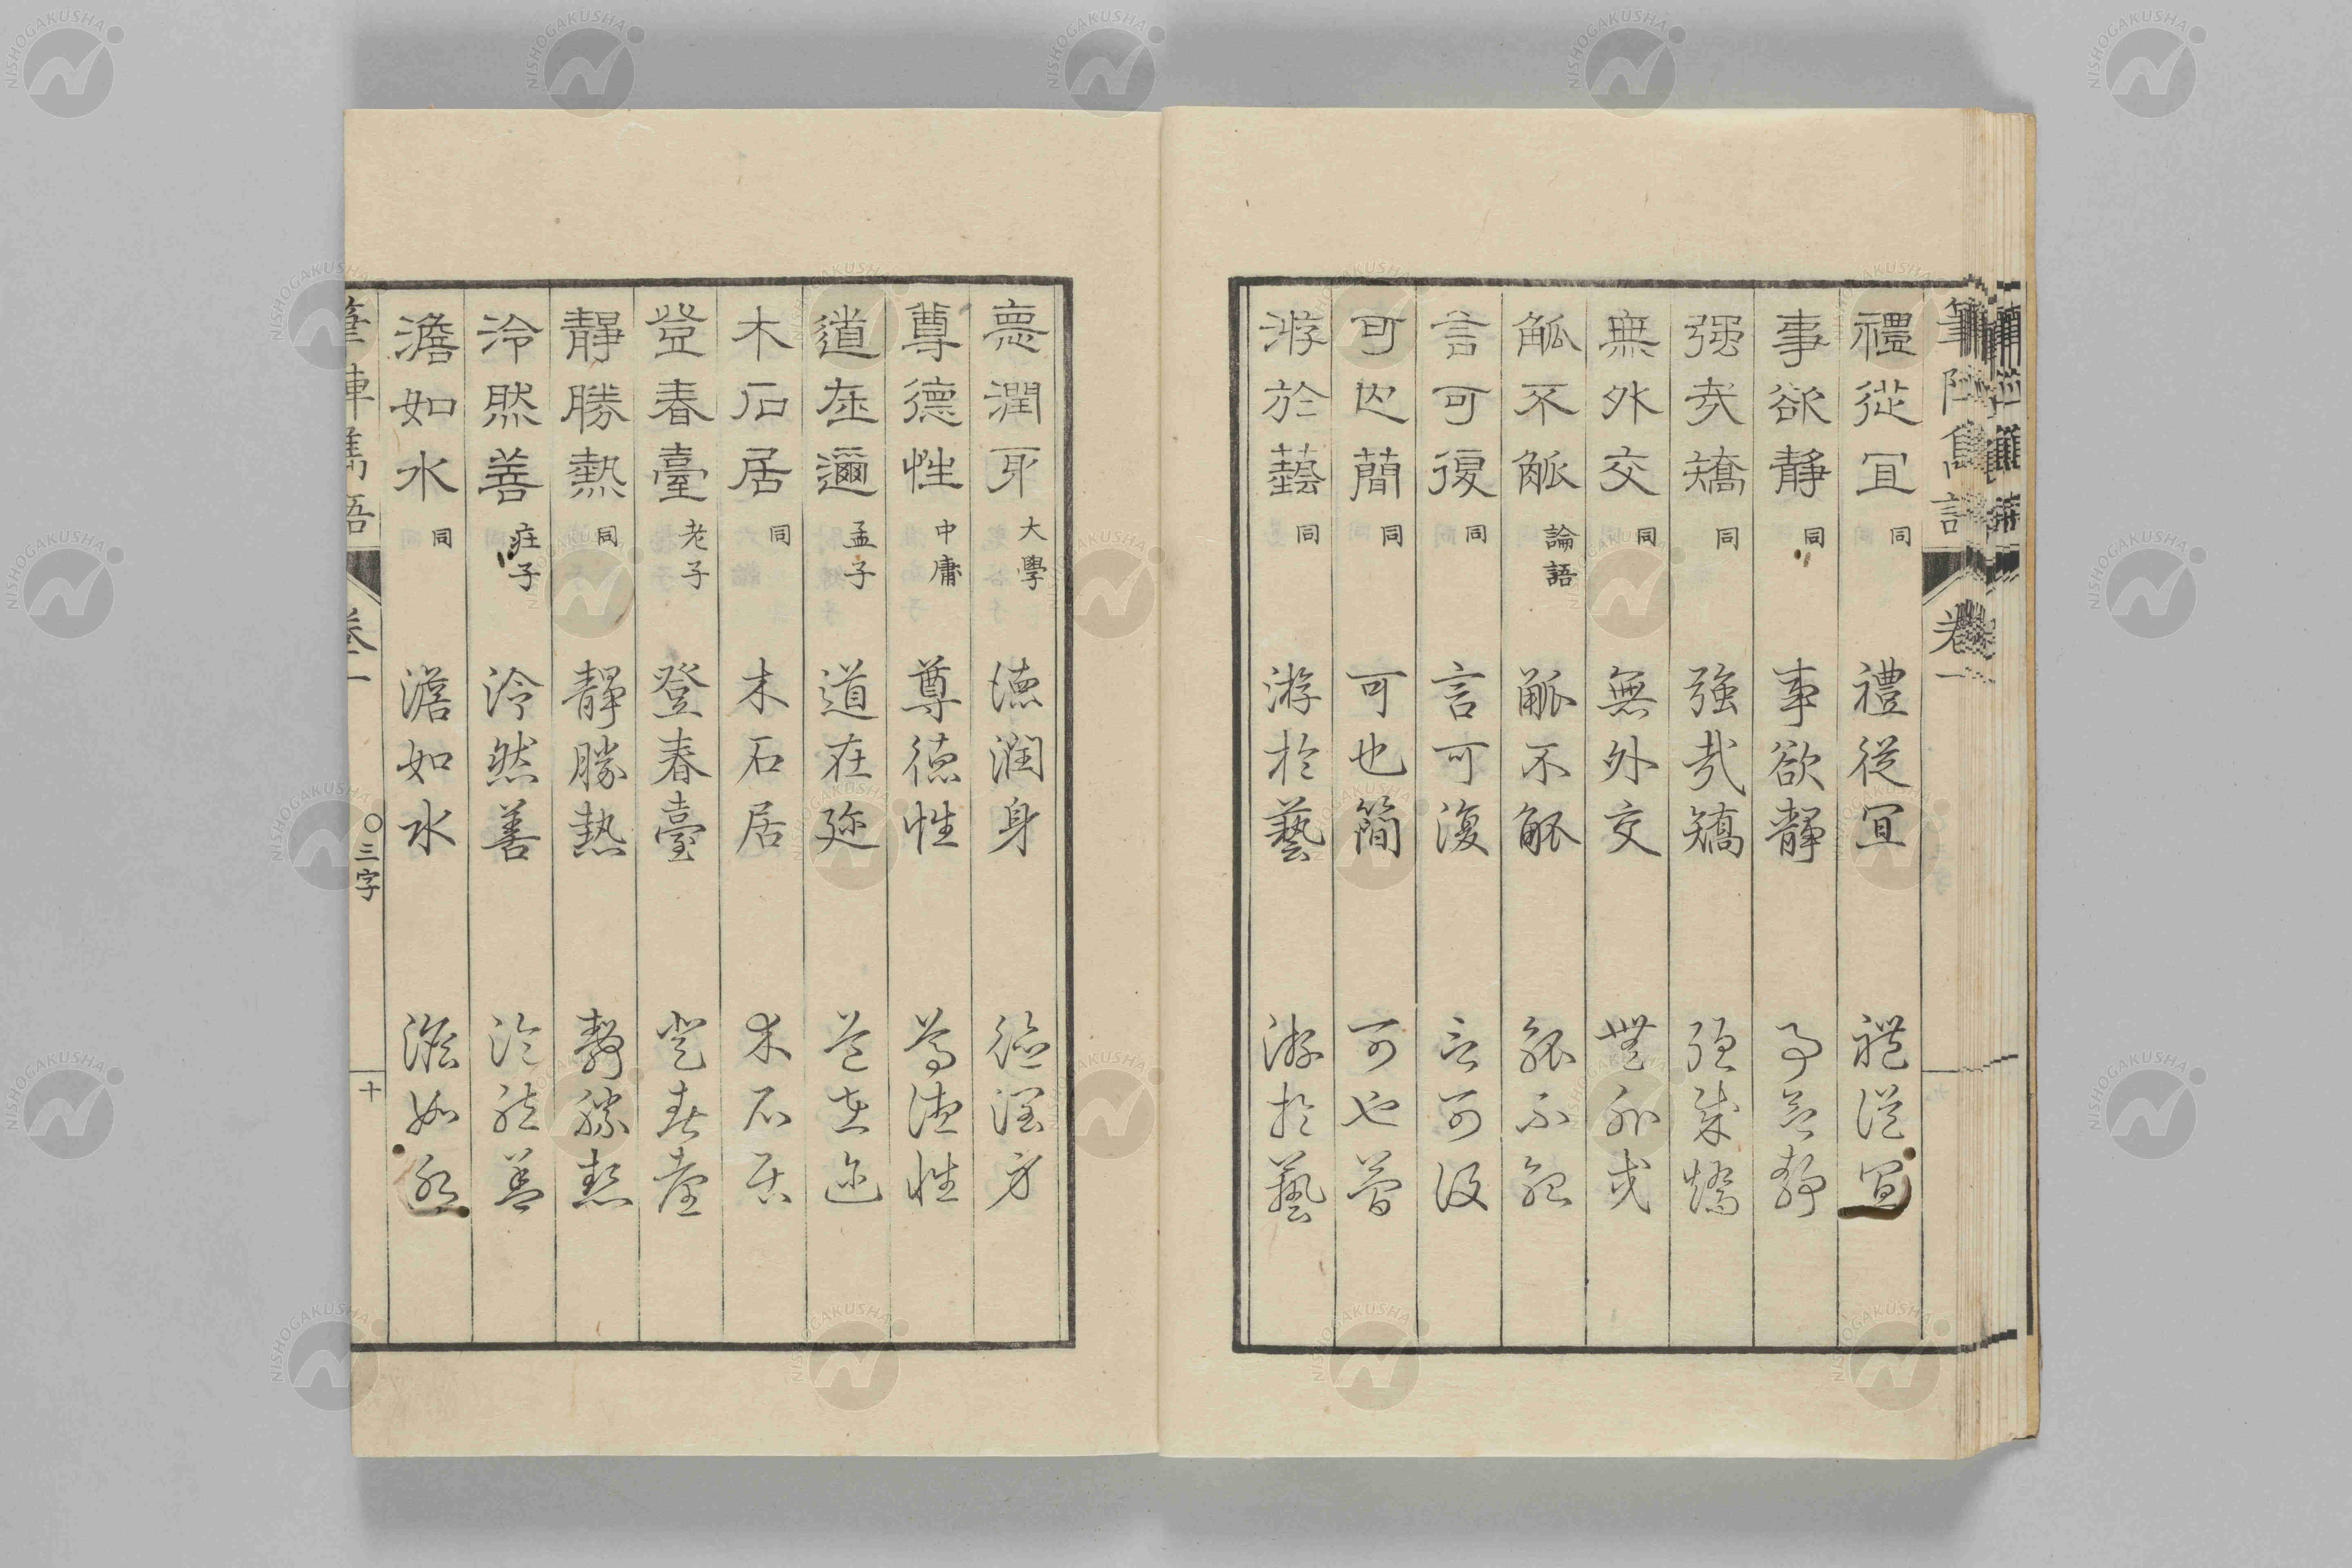 筆陣雋語 卷一
禮從宜 同 禮從宜 禮從宜
事欲靜 同 事欲靜 事欲靜
强哉矯 同 強哉矯 强哉矯
無外交 同 無外交 無外交
觚不觚 論語 觚不觚 觚不觚
言可復 同 言可復 言可復
可也簡 同 可也簡 可也簡
游於藝 同 游於藝 游於藝
悳潤身 大學 德潤身 德潤身
尊德性 中庸 尊德性 尊德性
道在邇 孟子 道在迩 道在迩
木石居 同 木石居 木石居
登春臺 老子 登春臺 登春臺
靜勝熱 同 靜勝熱 靜勝熱
泠然善 莊子 泠然善 泠然善
澹如水 同 澹如水 澹如水
筆陣雋語 卷一 〇三字 十
NISHOGAKUSHA